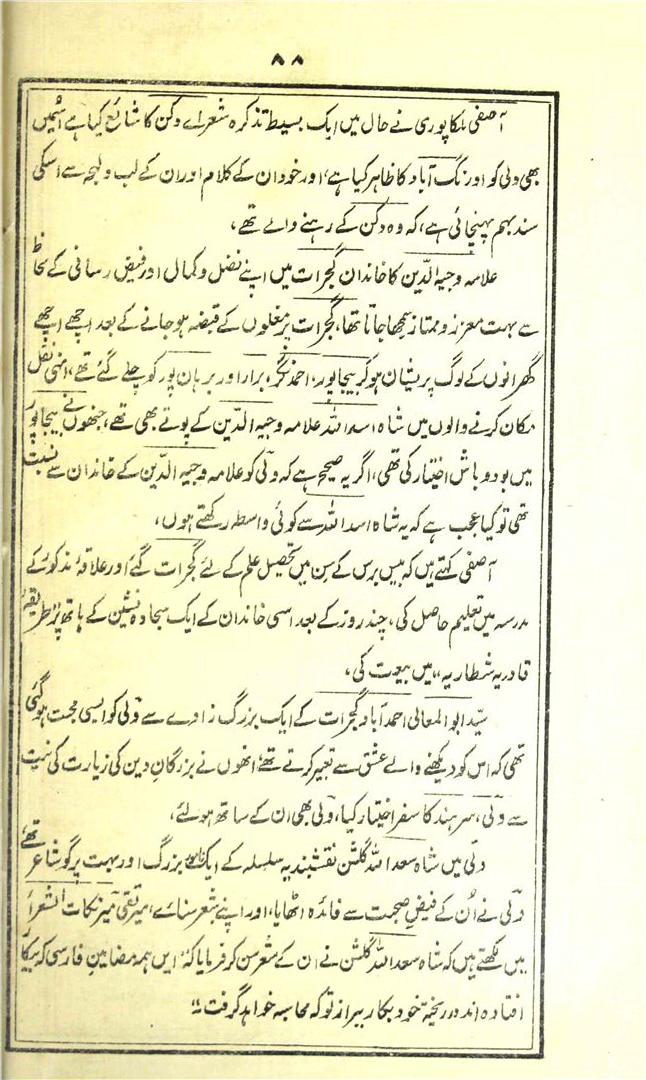 ۸۸
آصفی ملکاپوری نے حال میں ایک بسیط تذکرہ شعراے دکن کا شائع کیا ہے اسمیں
بھی ولی کو اورنگ آباد کا ظاہر کیا ہے، اور خود ان کے کلام اور ان کے لب و لہجہ سے اسکی
سند بہم پہنچائی ہے، کہ وہ دکن کے رہنے والے تھے،
علامہ وجیہ الدین کا خاندان گجرات میں اپنے فضل و کمال اور فیض رسانی کے لحاظ
سے بہت معزز و ممتاز سمجھا جاتا تھا، گجرات پر مغلوں کے قبضہ ہو جانے کے بعد اچھے اچھے
گھرانوں کے لوگ پریشان ہو کر بیجاپور، احمد نگر، برار اور برہان پور کو چلے گئے تھے، انہی نقل
مکان کرنے والوں میں شاہ اسد اللہ علامہ وجیہ الدین کے پوتے بھی تھے، جنھوں نے بیجاپور
میں بود و باش اختیار کی تھی، اگر یہ صحیح ہے کہ ولی کو علامہ وجیہ الدین کے خاندان سے نسبت
تھی تو کیا عجب ہے کہ یہ شاہ اسد اللہ سے کوئی واسطہ رکھتے ہوں،
آصفی کہتے ہیں کہ بیس برس کے سن میں تحصیل علم کے لئے گجرات گئے اور علاقۂ مذکور کے
مدرسہ میں تعلیم حاصل کی، چند روز کے بعد اسی خاندان کے ایک سجادہ نشین کے ہاتھ پر طریقۂ
قادریہ شطاریہ، میں بیعت کی،
سید ابو المعالی احمد آباد گجرات کے ایک بزرگ زادے سے ولی کو ایسی محبت ہو گئی
تھی کہ اس کو دیکھنے والے عشق سے تعبیر کرتے تھے انھوں نے بزرگان دین کی زیارت کی نیت
سے دلی، سر ہند کا سفر اختیار کیا، ولی بھی ان کے ساتھ ہو لئے،
دلی میں شاہ سعد اللہ گلشن نقشبندیہ سلسلہ کے ایک بزرگ اور بہت پر گو شاعر تھے
ولی نے اُن کے فیض صحبت سے فائدہ اٹھایا، اور اپنے شعر سنائے، میر تقی میر نکات الشعرا
میں لکھتے ہیں کہ شاہ سعد اللہ گلشن نے ان کے شعر سن کر فرمایا کہ "ایں ہمہ مضامین فارسی کہ بیکار
افتادہ اند در ریختہ خود بکار ببر از تو کہ محاسبہ خواہد گرفت"